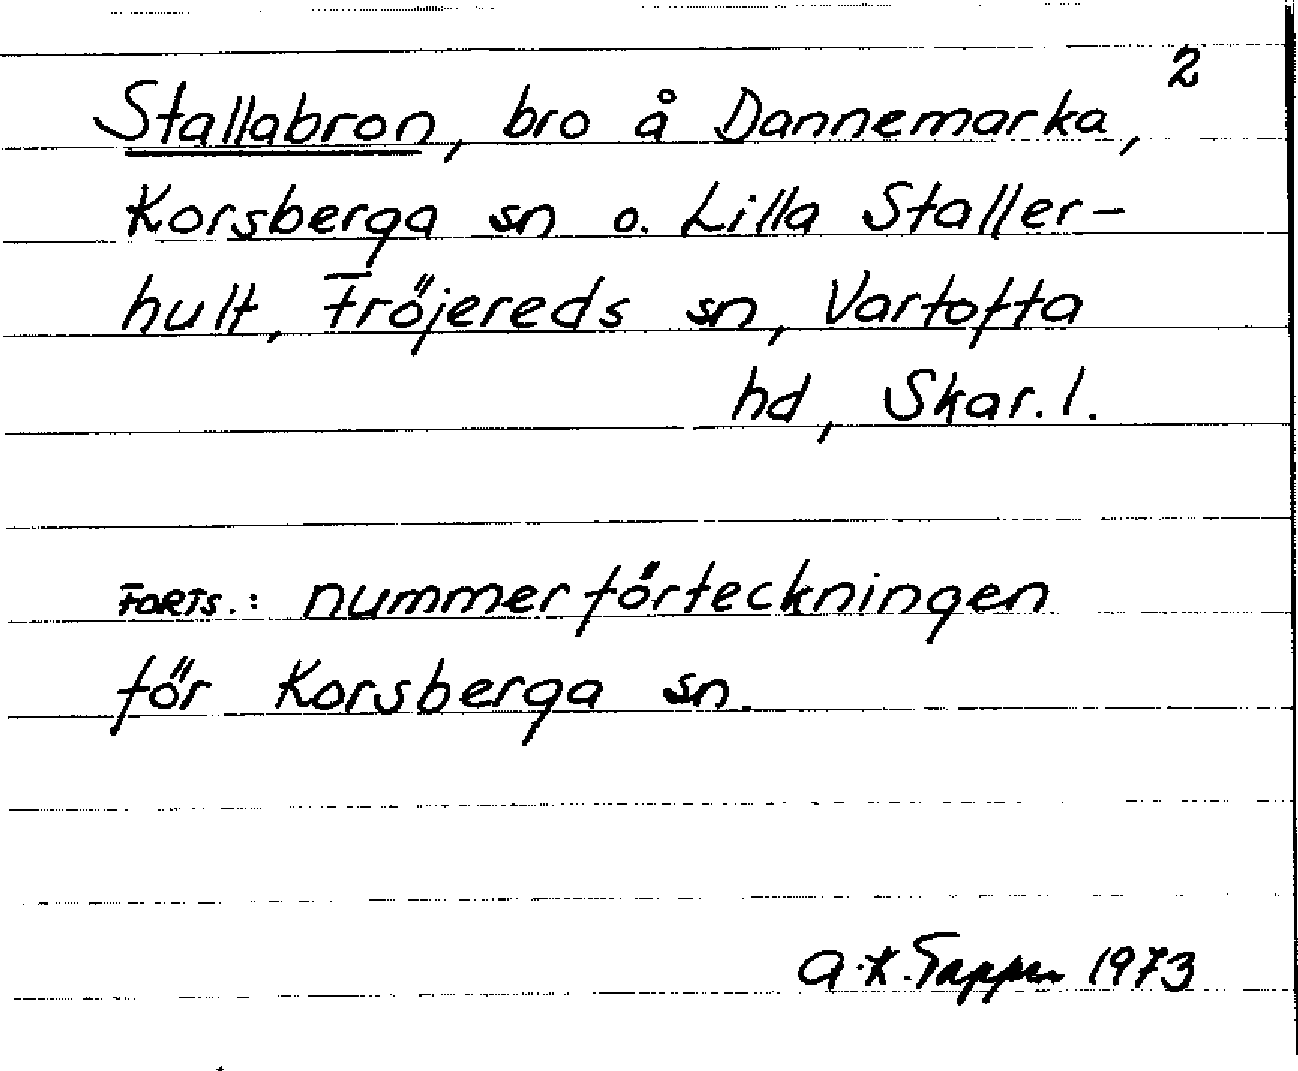 2
Stallabron, bro å Dannemarka,
Korsberga sn o. Lilla Staller-
hult, Fröjereds sn, Vartofta
hd, Skar. l.
FORTS.: nummerförteckningen
för Korsberga sn.
A.K. Tapper 1973